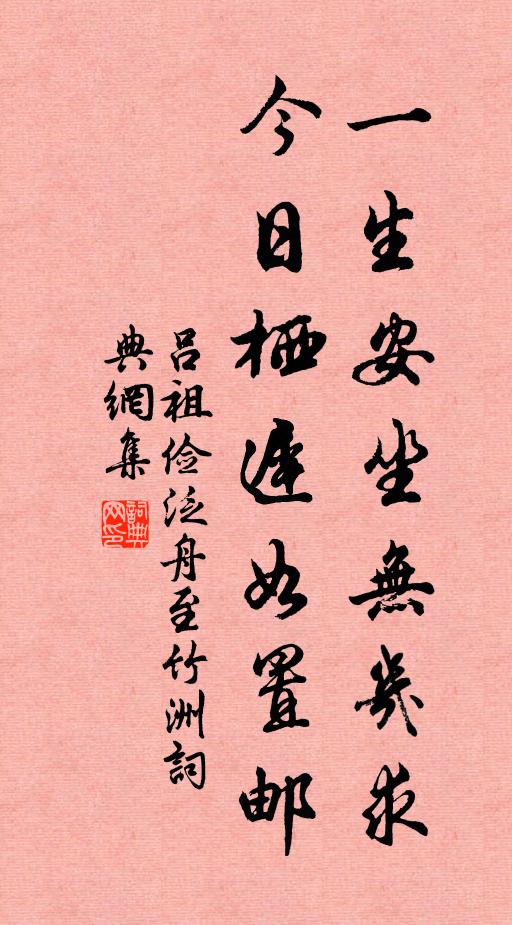 一生安坐無幾求
今日栖遲如置邮
呂祖俭泛舟至竹洲詞
典網集
詞典
网印